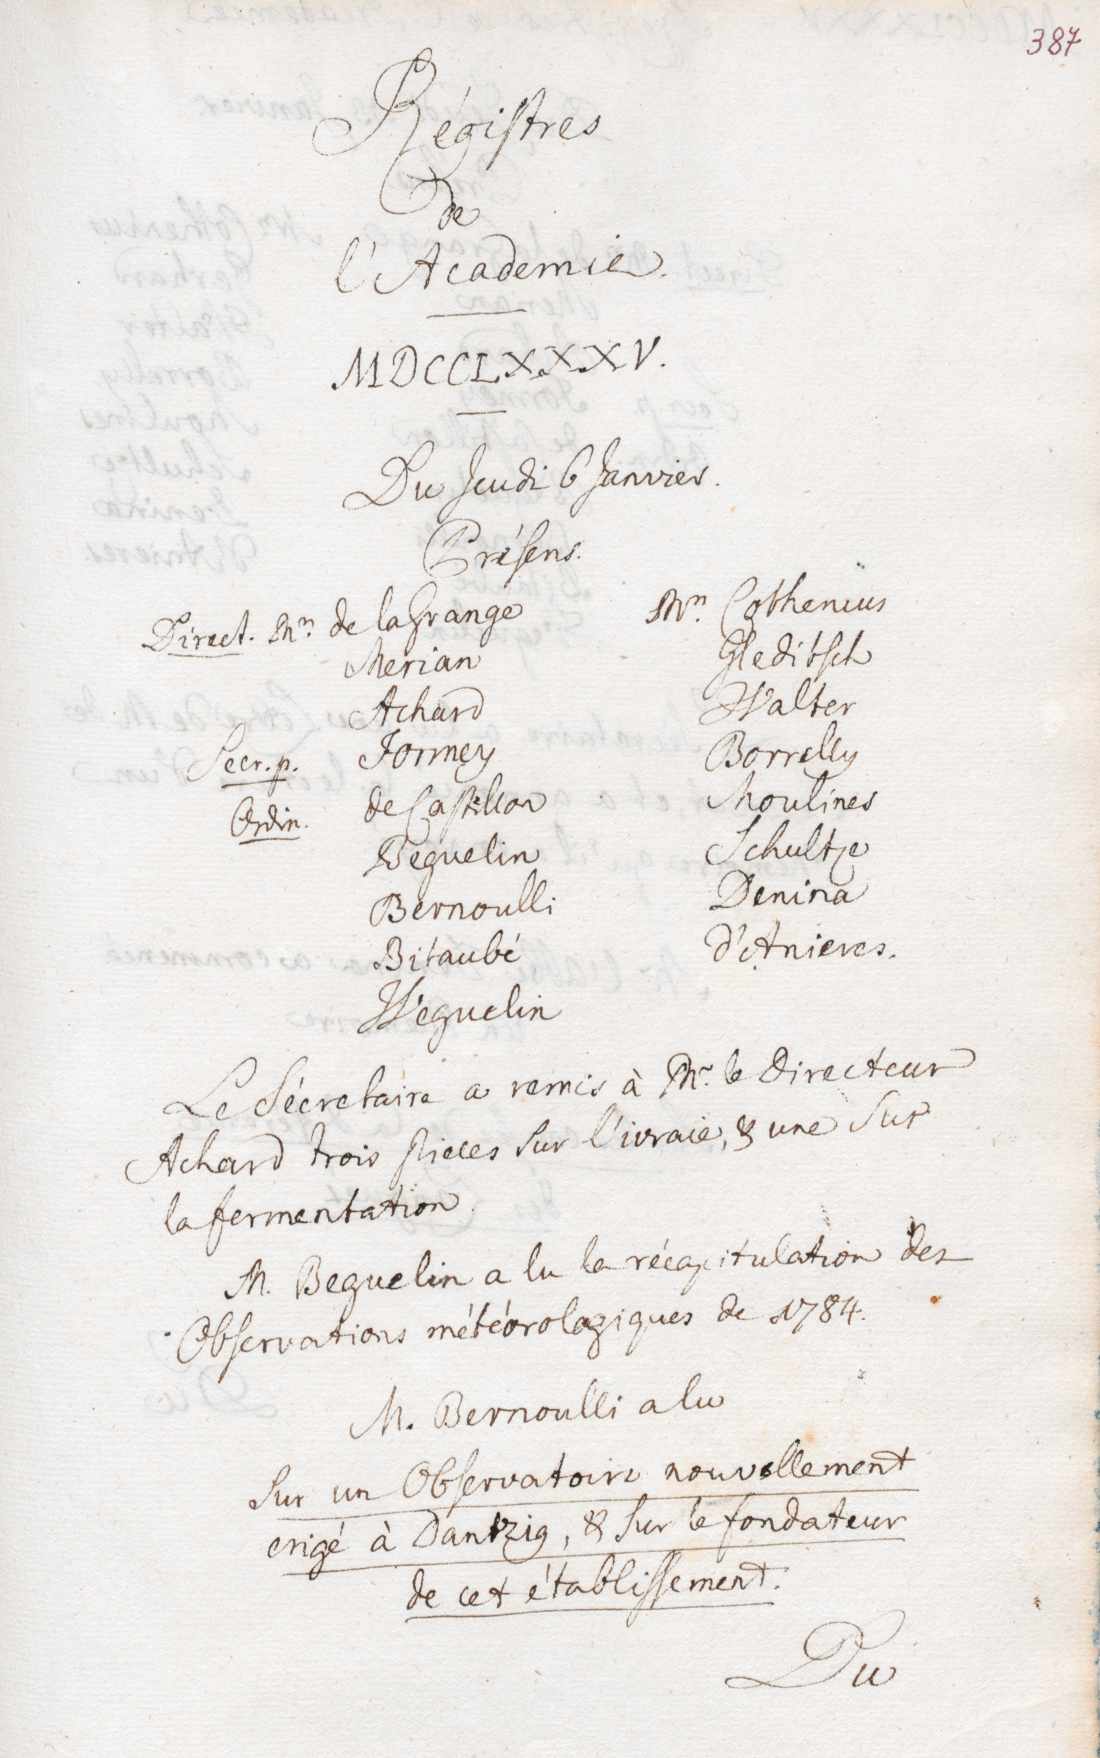 387
Régistres
de
l'Academie.
MDCCLXXXV.
Du Jeudi 6 Janvier.
Présens.
Direct. Mrs de la Grange
Merian
Achard
Secr. p. Formey
Ordin. de Castillon
Beguelin
Bernoulli
Bitaubé
Weguelin
Mrs Cothenius
Gleditsch
Walter
Borrelly
Moulines
Schultze
Denina
d'Anieres.
Le Sécretaire a remis à Mr. le Directeur
Achard trois pieces sur l'ivraie, & une sur
la fermentation.
M. Beguelin a lu la récapitulation des
Observations météorologiques de 1784.
M. Bernoulli a lu
Sur un Observatoire nouvellement
erigé à Dantzig, & sur le fondateur
de cet établissement.
Du